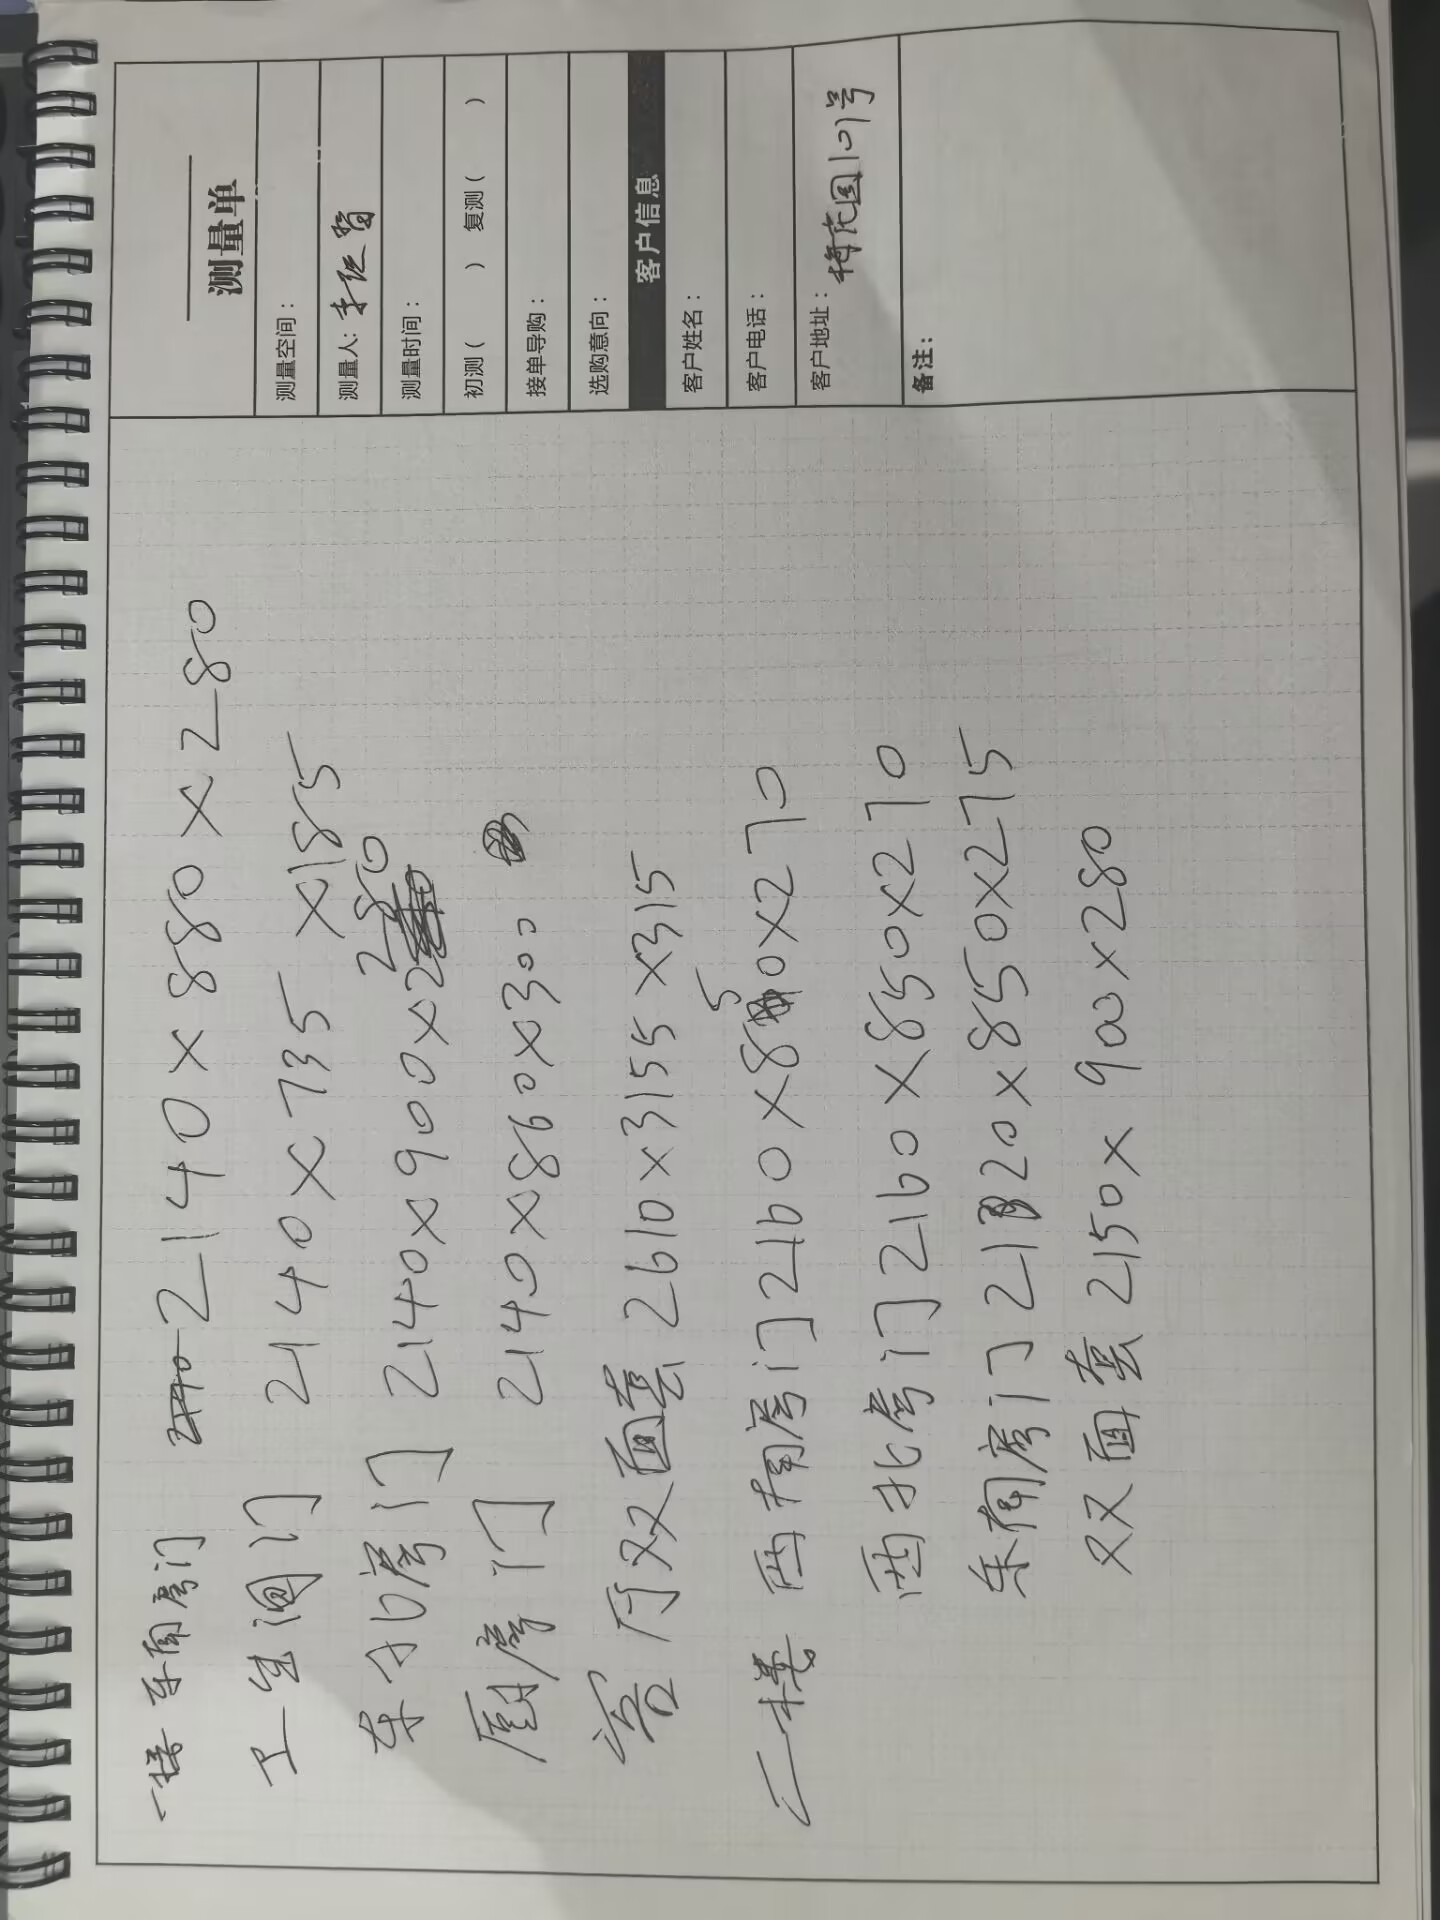 一楼 东南房门 2140×880×280
卫生间门 2140×735×185
东北房门 2140×900×280
厨房门 2140×860×300
客厅双面套 2610×3155×315
二楼 西南房门 2160×850×270
西北房门 2160×850×270
东南房门 2120×850×275
双面套 2150×900×280
测量单
测量空间：
测量人：李
测量时间：
初测（ ） 复测（ ）
接单导购：
选购意向：
客户信息
客户姓名：
客户电话：
客户地址：梅花园101号
备注：